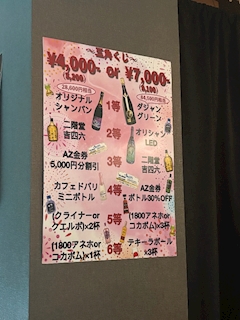 ¥4,000- or ¥7,000-
オリジナル
シャンパン
1等
ダジャン
グリーン
二階堂
吉四六
2等
オリシャン
LED
AZ金券
5,000円分割引
3等
二階堂
吉四六
カフェドパリ
ミニボトル
4等
AZ金券
ボトル30%OFF
(クライナーor
クエルボ)×2杯
5等
(1800アネホor
コカボム)×3杯
(1800アネホor
コカボム)×1杯
6等
テキーラボール
×3杯